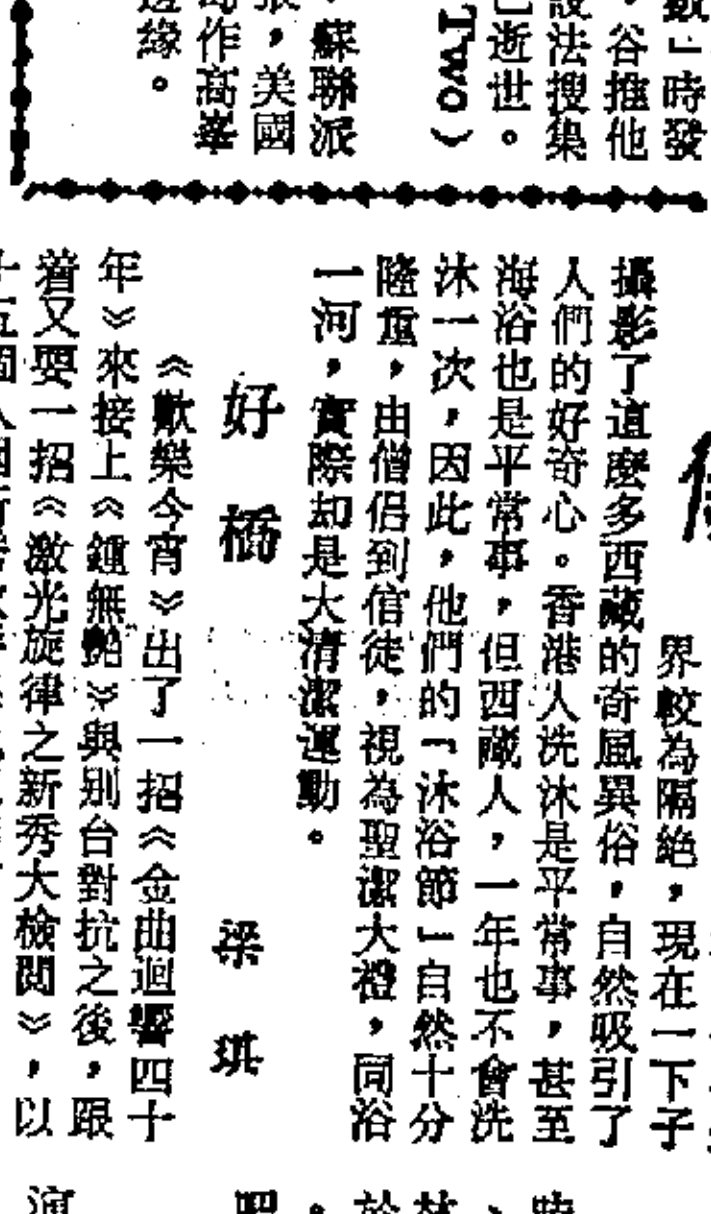 鐵」時發
，谷推他
設法搜集
已逝世。
Two）
，蘇聯派
張，美國
作高峯
邊緣。
界較為隔絶，現在一下子
攝影了這麼多西藏的奇風異俗，自然吸引了
人們的好奇心。香港人洗沐是平常事，甚至
海浴也是平常事，但西藏人，一年也不會洗
沐一次，因此，他們的「沐浴節」自然十分
隆重，由僧侶到信徒，視為聖潔大禮，同浴
一河，實際却是大清潔運動。
好橋
梁琪
《歡樂今宵》出了一招《金曲迴響四十
年》來接上《鍾無艷》與别台對抗之後，跟
着又耍一招《激光旋律之新秀大檢閲》，以
時
、
林
於
。
吧
演